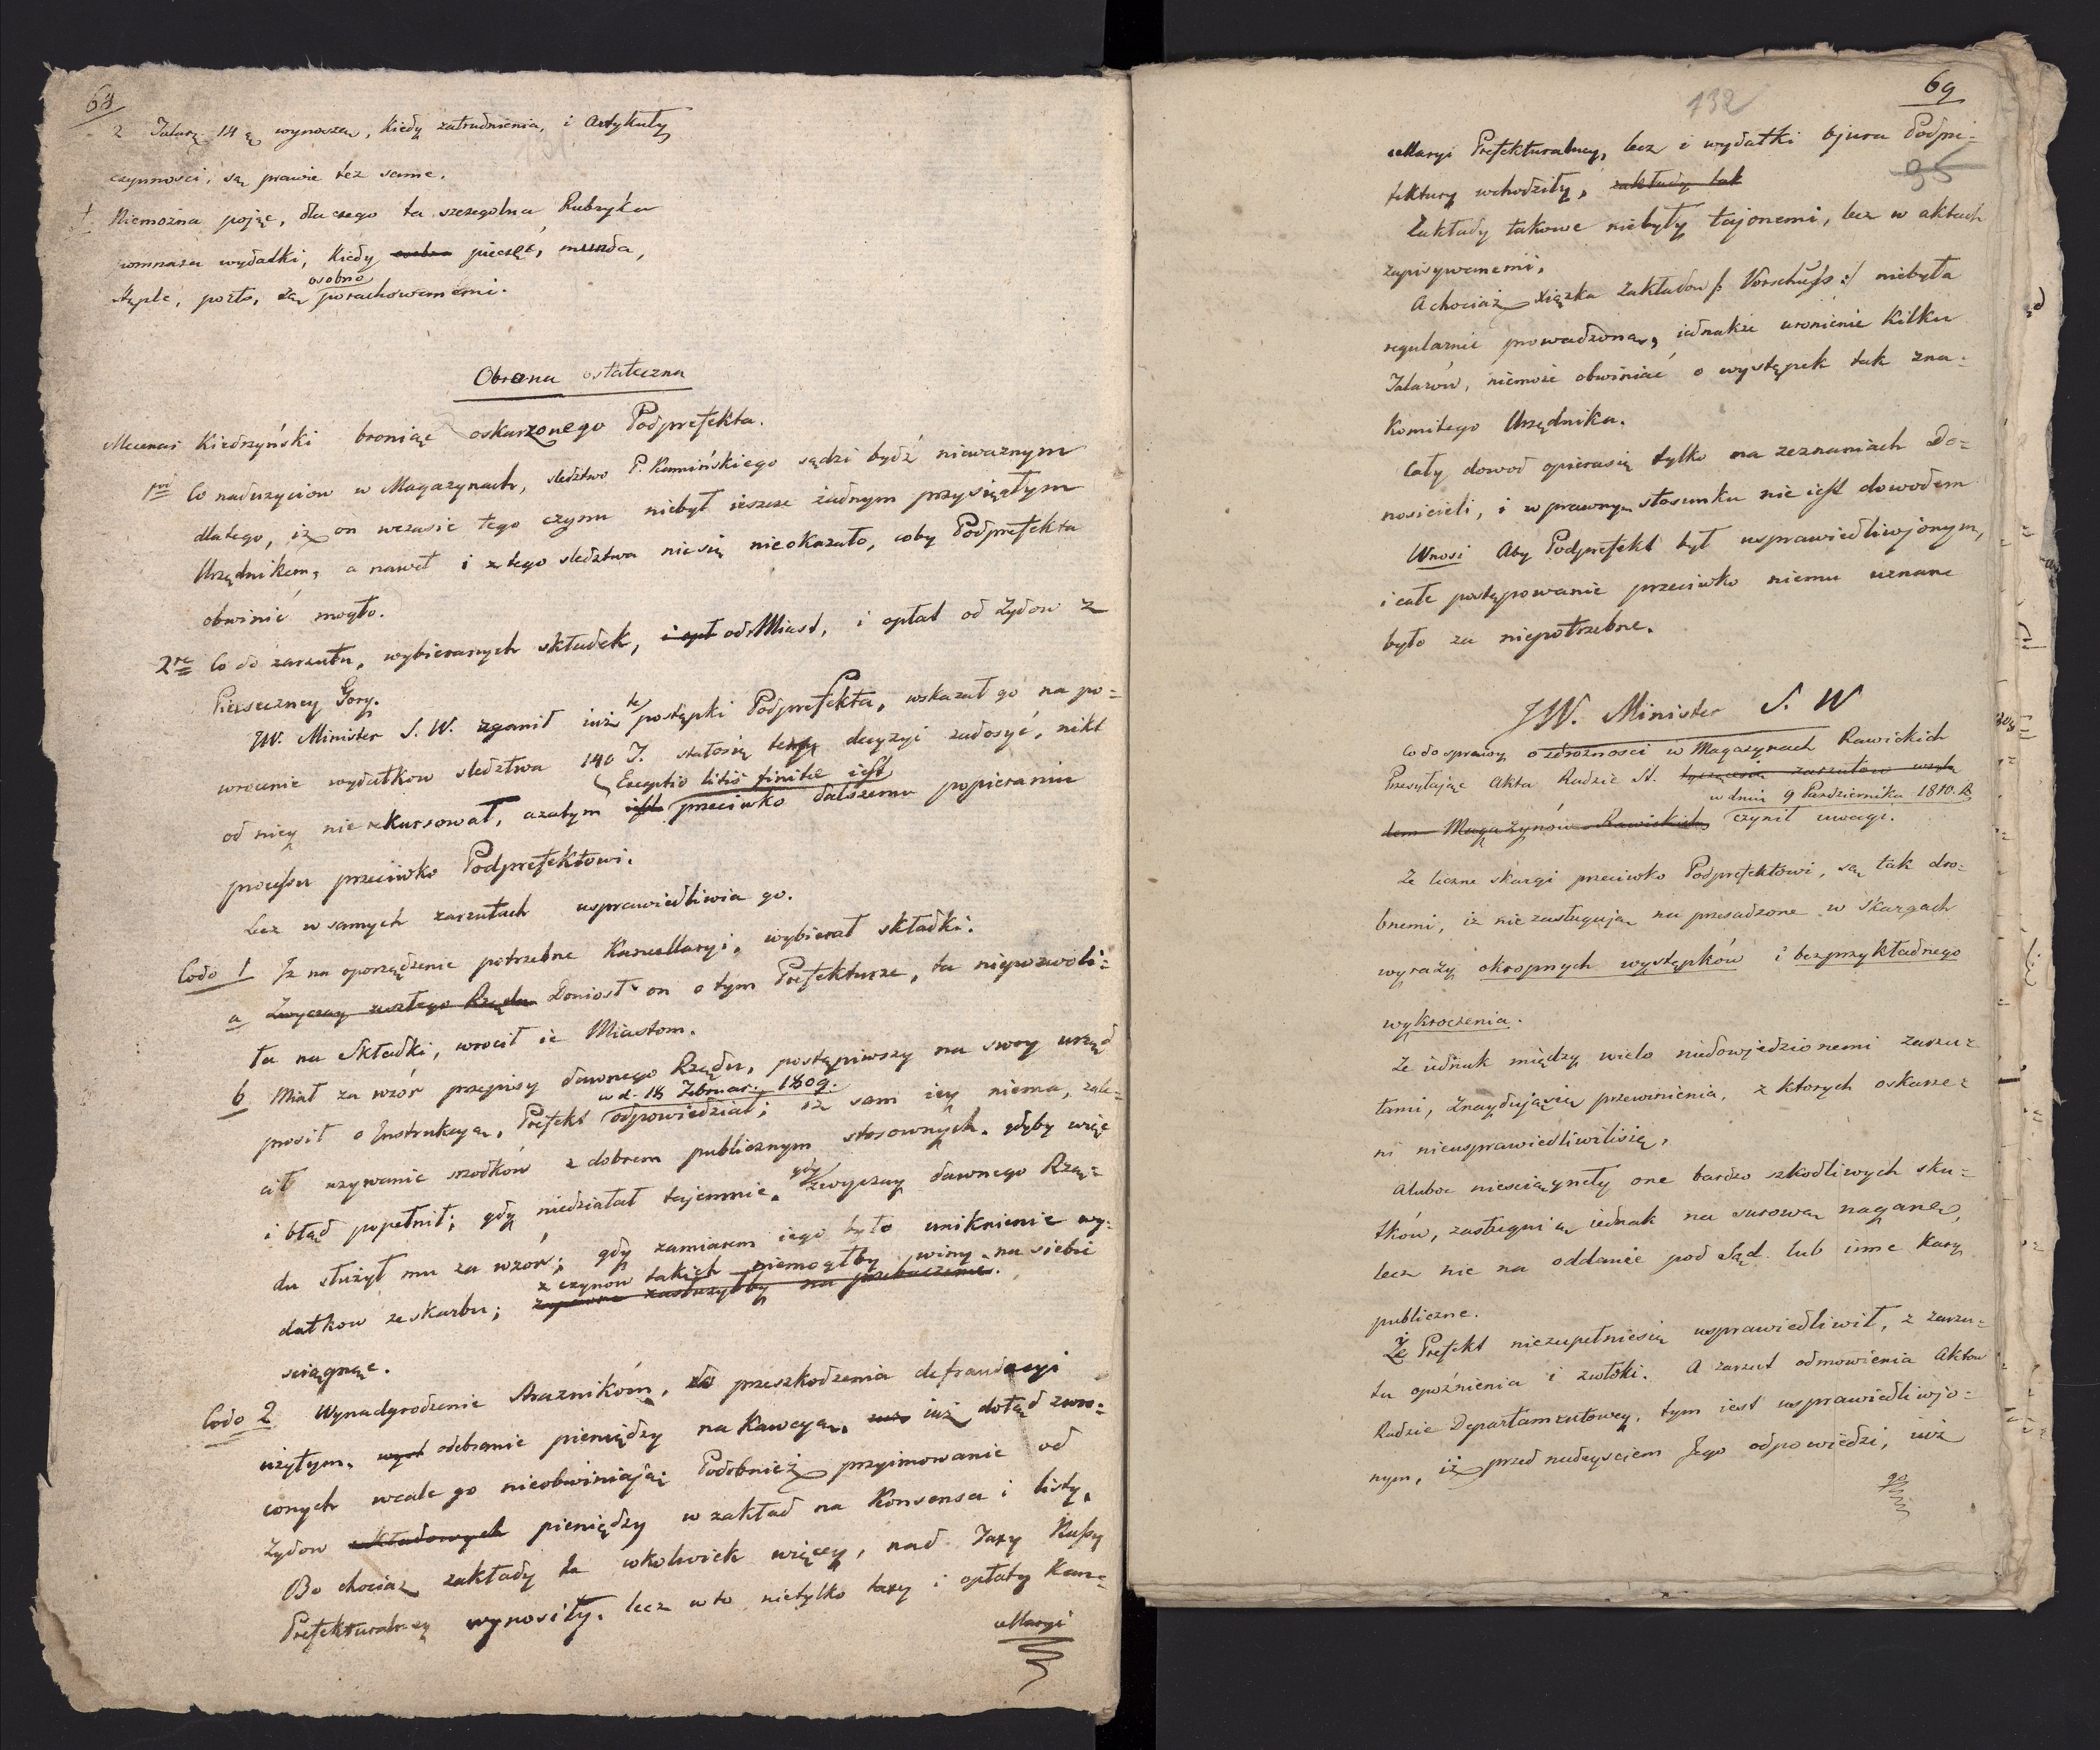 68
2 Talarę 14 ę wynoszą, kiedy zatrudnienia, i Artykuły
czynnosci, są prawie też same.
† Niemożna pojąc, dlaczego ta szczegolna Rubryka
pomnaża wydatki, kiedy pieczęć, munda,
osobno
stęple, porto, są porachowanemi.
Obrona ostateczna
Mecenas Kiedrzyński broniąc oskarzonego Podprefekta.
1mo Co nadużyciow w Magazynach, sledztwo P. Kamińskiego sądzi bydź nieważnym
dlatego, iż on wczasie tego czynu niebył ieszcze żadnym przysięgłym
Urzędnikem, a nawet i z tego sledztwa nic się nieokazało, coby Podprefekta
obwinić mogło.
2re Co do zarzutu, wybieranych składek, i opł od Miast, i opłat od Żydow z
Piaseczney Gory.
JW. Minister S. W. zganił iuż te postępki Podprefekta, wskazał go na po=
wrocenie wydatkow sledztwa 140 T. stałosię decyzyi zadosyć, nikt
Exceptio litis finitæ iest
od niey nierekursował, azatym iest przeciwko dalszemu popieraniu
processu przeciwko Podprefektowi.
Lecz w samych zarzutach usprawiedliwia go.
Codo 1 Iż na oporządzenie potrzebne Kancellaryi, wybierał składki.
a Zwyczay zeszłego Rządu Doniosł on o tym Prefekturze, ta niepozwoli=
ła na Składki, wrocił ie Miastom.
b Miał za wzór przepisy dawnego Rządu, postąpiwszy na swoy urząd
w d. 18 Februar. 1809.
prosił o Instrukcyą, Prefekt odpowiedział, iż sam iey niema, zale=
cił używanie srzodków z dobrem publicznym stosownych. gdyby więc
i błąd popełnił; gdy niedziałał tajemnie, gdy zwyczay dawnego Rzą=
du służył mu za wzor; gdy zamiarem iego było uniknienie wy=
z czynow takich niemogłby winy na siebie
datkow ze skarbu; zapewne zasłużyłby na przebaczenie.
sciągnąc.
Codo 2 Wynadgrodzenie Strażnikóm, do przeszkodzenia defraudacyi
użytym, odebranie pieniędzy na Kawcyą, iuż dotąd zwro=
conych wcale go nieobwiniaią; Podobnież przyimowanie od
Żydow zakładowych pieniędzy w zakład na Konsensa i listy,
Bo chociaz zakłady te cokolwiek więcey, nad Taxy Kassy
Prefekturalney wynosiły. lecz w to nietylko taxy i opłaty Kanc=
ellaryi
69
132
95
ellaryi Prefekturalney, lecz i wydatki bjura Podpre=
fektury wchodziły, zakłady tak
Zakłady takowe niebyły tajonemi, lecz w aktach
zapisywanemi,
A chociaż xiązka Zakładow /: Vorschuss :/ niebyła
regularnie prowadzona, iednakże uronienie kilku
Talarów, niemoże obwiniać o występek tak zna=
komitego Urzędnika.
Cały dowod opierasię tylko na zeznaniach Do=
nosicieli, i w prawnym stosunku nie iest dowodem
Wnosi Aby Podprefekt był usprawiedliwjonym,
i całe postępowanie przeciwko niemu uznane
było za niepotrzebne.
JW. Minister S. W
Co do sprawy o zdrożnosci w Magazynach Rawickich
Przesyłając Akta Radzie St. tyczącesię zarzutow wzglę
w dniu 9 Pazdziernika 1810. R
dem Magazynów Rawickich czynił uwagi.
Że liczne skargi przeciwko Podprefektowi, są tak dro=
bnemi, iż nie zasługują na przesadzone w skargach
wyrazy okropnych występków i bezprzykładnego
wykroczenia.
Że iednak między wielo niedowjedzionemi zarzu=
tami, znayduiąsię przewinienia, z ktorych oskarże=
ni nieusprawiedliwilisię,
Aluboc niesciągnęły one bardzo szkodliwych sku=
tków, zasługuią iednak na surową naganę,
lecz nie na oddanie pod Sąd lub inne kary
publiczne.
Że Prefekt niezupełniesię usprawiedliwił, z zarzu=
tu opoźnienia i zwłoki. A zarzut odmowienia Aktow
Radzie Departamentowey, tym iest usprawiedliwjo=
nym, iż przed nadeysciem Jego odpowiedzi, iuż
go